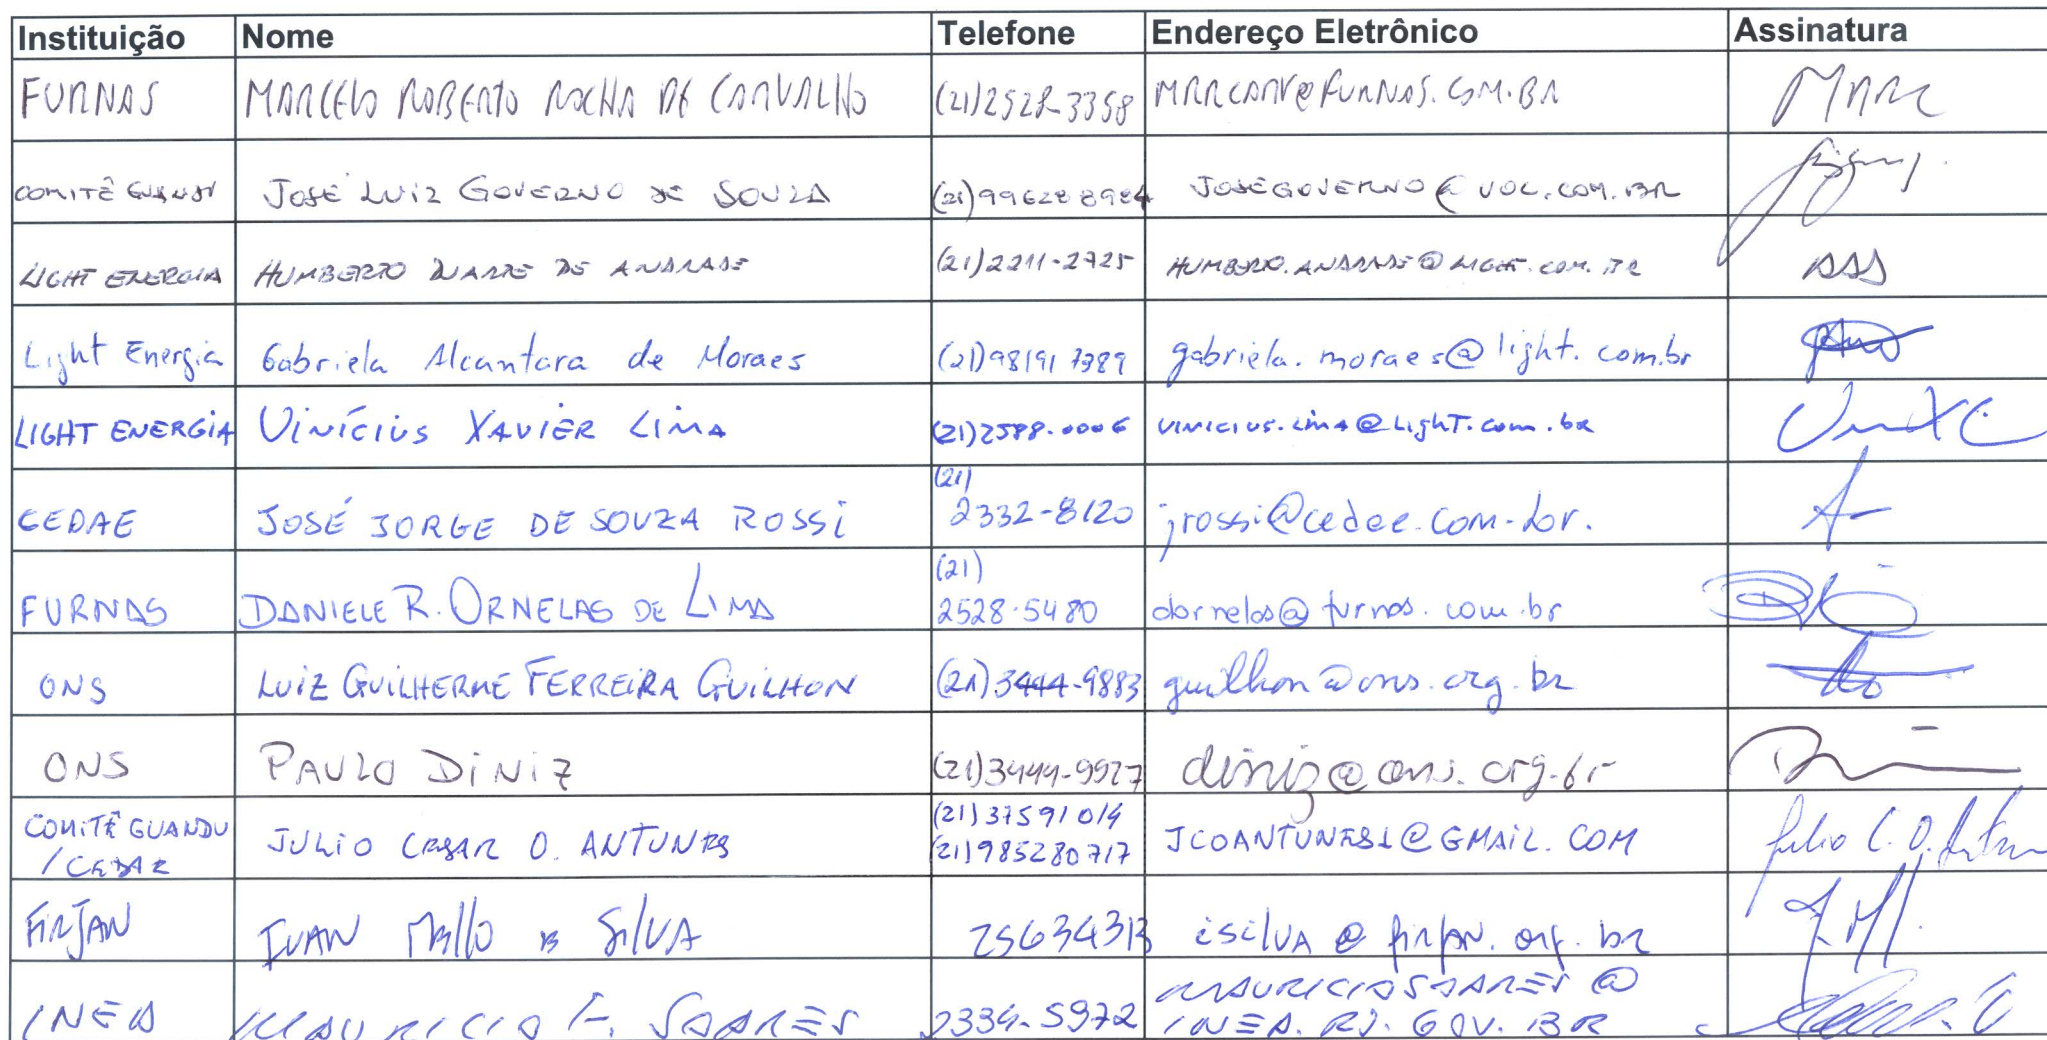 Instituição Nome Telefone Endereço Eletrônico Assinatura
FURNAS MARCELO ROBERTO ROCHA DE CARVALHO (21)2528-3358 MRRCARV@FURNAS.COM.BR
COMITÊ GUANDU JOSÉ LUIZ GOVERNO DE SOUZA (21)99628 8984 JOSEGOVERNO@UOL.COM.BR
LIGHT ENERGIA HUMBERTO DUARTE DE ANDRADE (21)2211-2725 HUMBERTO.ANDRADE@LIGHT.COM.BR
Light Energia Gabriela Alcantara de Moraes (21)98191 7389 gabriela.moraes@light.com.br
LIGHT ENERGIA VINÍCIUS XAVIER LIMA (21)2588-0006 VINICIUS.LIMA@LIGHT.com.br
(21)
CEDAE JOSÉ JORGE DE SOUZA ROSSI 2332-8120 jrossi@cedae.com.br.
(21)
FURNAS DANIELE R. ORNELAS DE LIMA 2528-5480 dornelas@furnas.com.br
ONS LUIZ GUILHERME FERREIRA GUILHON (21)3444-9883 guilhon@ons.org.br
ONS PAULO DINIZ (21)3444-9927 diniz@ons.org.br
COMITÊ GUANDU (21)37591014
/CEDAE JULIO CESAR O. ANTUNES (21)985280717 JCOANTUNES1@GMAIL.COM
FIRJAN IVAN Mello e SilVA 25634313 isilVA@firjan.org.br
MAURICIOSOARES@
INEA MAURICIO F. SOARES 2334-5972 INEA.RJ.GOV.BR